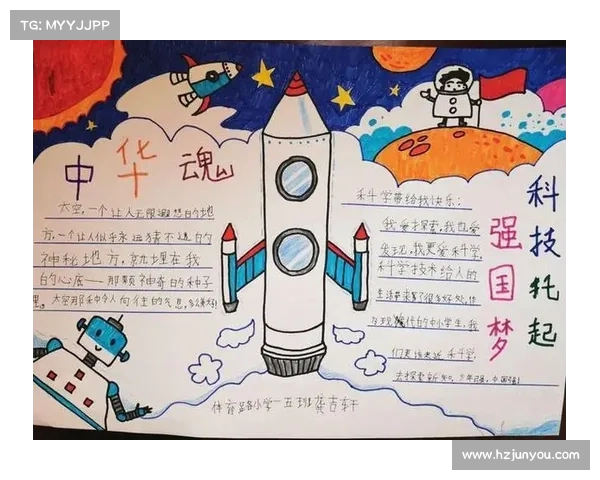 TG: MYYJJPP
中华魂
太空,一个让人无限遐想的地
方,一个让人似乎永远猜不透的
神秘地方,就埋在我
的心底——那颗神奇的种子
里。太空那和令人向往的气息,多么美好!
科学带给我快乐:
我爱探索,我也爱
发现,我更爱科学,
科学技术给人的
生活带来了很多好处,作
为现代的中小学生,我
们更该走近科学,
去探索新知,少年强,中国强!
科技托起
强国梦
体育路小学一五班龚吉轩
www.hzjunyou.com